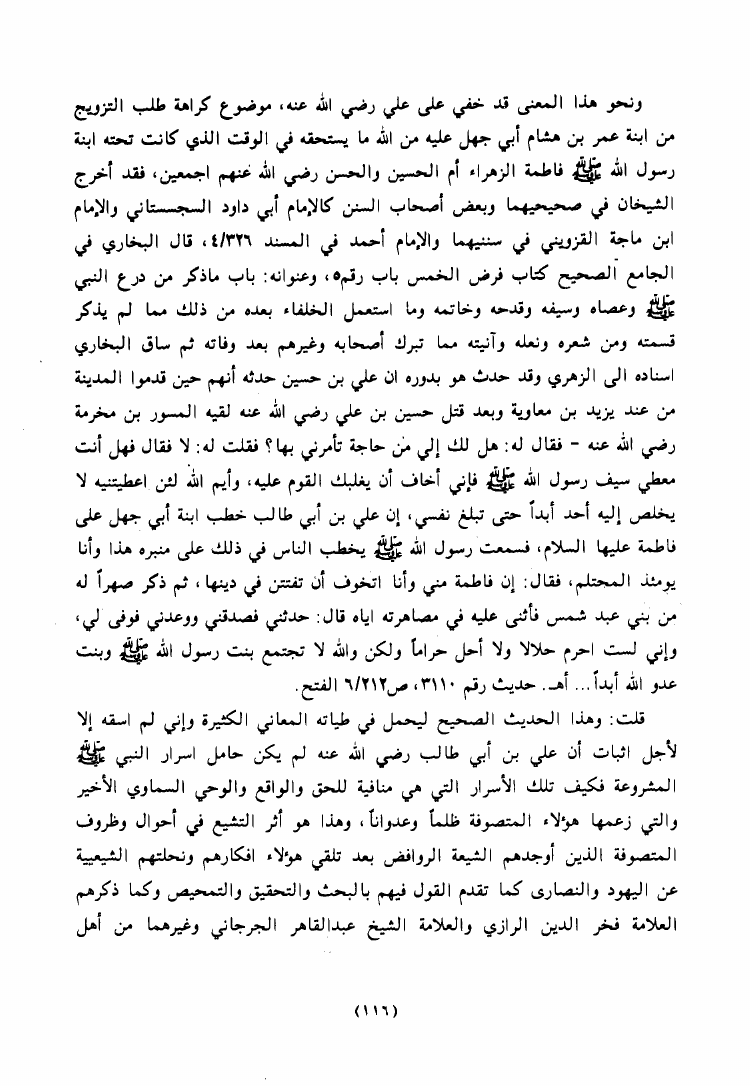 ونحو هذا المعنى قد خفي على علي رضي الله عنه، موضوع كراهة طلب التزويج
من ابنة عمر بن هشام أبي جهل عليه من الله ما يستحقه في الوقت الذي كانت تحته ابنة
رسول الله ﷺ فاطمة الزهراء أم الحسين والحسن رضي الله عنهم اجمعين، فقد أخرج
الشيخان في صحيحيهما وبعض أصحاب السنن كالإمام أبي داود السجستاني والإمام
ابن ماجة القزويني في سننيهما والإمام أحمد في المسند ٤/٣٢٦، قال البخاري في
الجامع الصحيح كتاب فرض الخمس باب رقم٥، وعنوانه: باب ماذكر من درع النبي
ﷺ وعصاه وسيفه وقدحه وخاتمه وما استعمل الخلفاء بعده من ذلك مما لم يذكر
قسمته ومن شعره ونعله وآنيته مما تبرك أصحابه وغيرهم بعد وفاته ثم ساق البخاري
اسناده الى الزهري وقد حدث هو بدوره ان علي بن حسين حدثه أنهم حين قدموا المدينة
من عند يزيد بن معاوية وبعد قتل حسين بن علي رضي الله عنه لقيه المسور بن مخرمة
رضي الله عنه - فقال له: هل لك إلي من حاجة تأمرني بها؟ فقلت له: لا فقال فهل أنت
معطي سيف رسول الله ﷺ فإني أخاف أن يغلبك القوم عليه، وأيم الله لئن اعطيتنيه لا
يخلص إليه أحد أبداً حتى تبلغ نفسي، إن علي بن أبي طالب خطب ابنة أبي جهل على
فاطمة عليها السلام، فسمعت رسول الله ﷺ يخطب الناس في ذلك على منبره هذا وأنا
يومئذ المحتلم، فقال: إن فاطمة مني وأنا اتخوف أن تفتتن في دينها، ثم ذكر صهراً له
من بني عبد شمس فأثنى عليه في مصاهرته اياه قال: حدثني فصدقني ووعدني فوفى لي،
وإني لست احرم حلالا ولا أحل حراماً ولكن والله لا تجتمع بنت رسول الله ﷺ وبنت
عدو الله أبداً... أهـ. حديث رقم ٣١١٠، ص٦/٢١٢ الفتح.
قلت: وهذا الحديث الصحيح ليحمل في طياته المعاني الكثيرة وإني لم اسقه إلا
لأجل اثبات أن علي بن أبي طالب رضي الله عنه لم يكن حامل اسرار النبي ﷺ
المشروعة فكيف تلك الأسرار التي هي منافية للحق والواقع والوحي السماوي الأخير
والتي زعمها هؤلاء المتصوفة ظلماً وعدواناً، وهذا هو أثر التشيع في أحوال وظروف
المتصوفة الذين أوجدهم الشيعة الروافض بعد تلقي هؤلاء افكارهم ونحلتهم الشيعيية
عن اليهود والنصارى كما تقدم القول فيهم بالبحث والتحقيق والتمحيص وكما ذكرهم
العلامة فخر الدين الرازي والعلامة الشيخ عبدالقاهر الجرجاني وغيرهما من أهل
(١١٦)